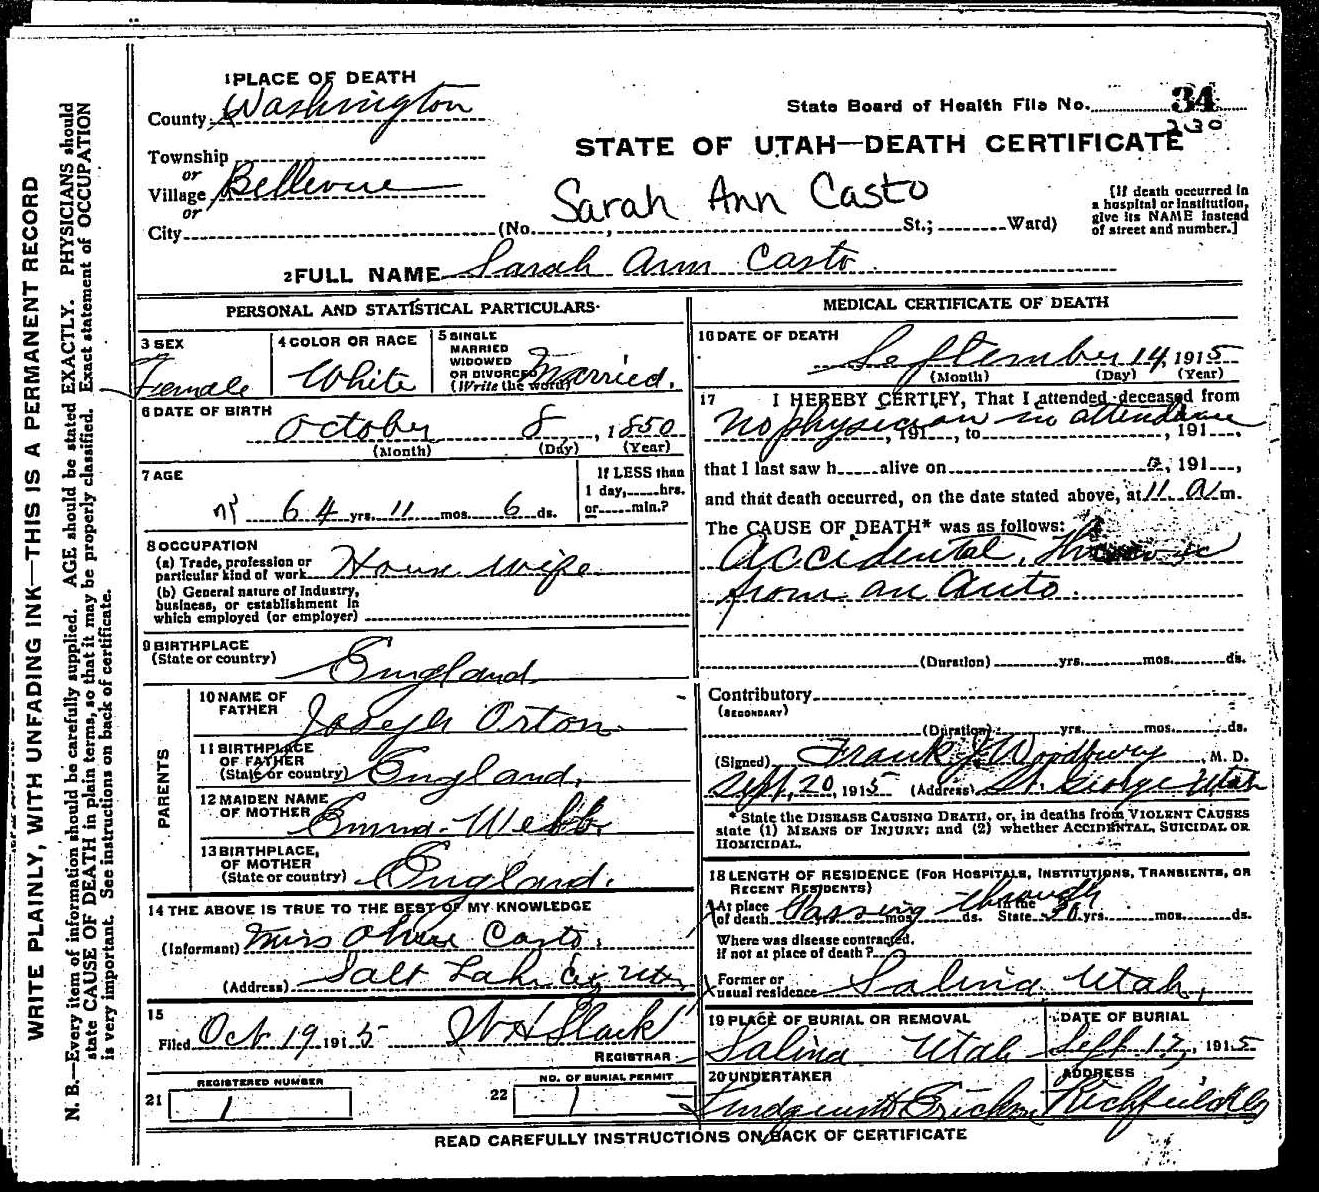 1 PLACE OF DEATH
County Washington
State Board of Health File No. 34
230
STATE OF UTAH—DEATH CERTIFICATE
Township
or
Village Bellevue
or
City (No. , St.; Ward)
Sarah Ann Casto
[If death occurred in
a hospital or institution,
give its NAME instead
of street and number.]
2 FULL NAME Sarah Ann Casto
PERSONAL AND STATISTICAL PARTICULARS
3 SEX
Female
4 COLOR OR RACE
White
5 SINGLE
MARRIED
WIDOWED
OR DIVORCED
(Write the word)
Married.
6 DATE OF BIRTH
October 8, 1850
(Month) (Day) (Year)
7 AGE
64 yrs. 11 mos. 6 ds.
If LESS than
1 day, hrs.
or min.?
8 OCCUPATION
(a) Trade, profession or
particular kind of work House wife
(b) General nature of Industry,
business, or establishment in
which employed (or employer)
9 BIRTHPLACE
(State or country)
England
PARENTS
10 NAME OF
FATHER
Joseph Orton
11 BIRTHPLACE
OF FATHER
(State or country) England.
12 MAIDEN NAME
OF MOTHER
Emma Webb
13 BIRTHPLACE,
OF MOTHER
(State or country) England.
14 THE ABOVE IS TRUE TO THE BEST OF MY KNOWLEDGE
(Informant) Casto.
(Address) Salt Lake City Utah
15
Filed Oct 19 1915 W H Slack
REGISTRAR
REGISTERED NUMBER
21 1
NO. OF BURIAL PERMIT
22 1
MEDICAL CERTIFICATE OF DEATH
16 DATE OF DEATH
September 14, 1915
(Month) (Day) (Year)
17 I HEREBY CERTIFY, That I attended deceased from
No physician in attendance, 191 , to , 191 ,
that I last saw h alive on , 191 ,
and that death occurred, on the date stated above, at 11 A m.
The CAUSE OF DEATH* was as follows:
Accidental,
from an Auto
(Duration) yrs. mos. ds.
Contributory
(SECONDARY)
(Duration) yrs. mos. ds.
(Signed) Frank J Woodbury, M. D.
Sept, 20, 1915 (Address) St. George Utah
* State the DISEASE CAUSING DEATH, or, in deaths from VIOLENT CAUSES
state (1) MEANS OF INJURY; and (2) whether ACCIDENTAL, SUICIDAL OR
HOMICIDAL.
18 LENGTH OF RESIDENCE (FOR HOSPITALS, INSTITUTIONS, TRANSIENTS, OR
RECENT RESIDENTS)
At place
of death Passing through mos. ds. State yrs. mos. ds.
Where was disease contracted,
if not at place of death?
Former or
usual residence Salina Utah,
19 PLACE OF BURIAL OR REMOVAL
Salina Utah
DATE OF BURIAL
Sept 17, 1915
20 UNDERTAKER
ADDRESS
READ CAREFULLY INSTRUCTIONS ON BACK OF CERTIFICATE
WRITE PLAINLY, WITH UNFADING INK—THIS IS A PERMANENT RECORD
N. B.—Every item of information should be carefully supplied. AGE should be stated EXACTLY. PHYSICIANS should
state CAUSE OF DEATH in plain terms, so that it may be properly classified. Exact statement of OCCUPATION
is very important. See instructions on back of certificate.